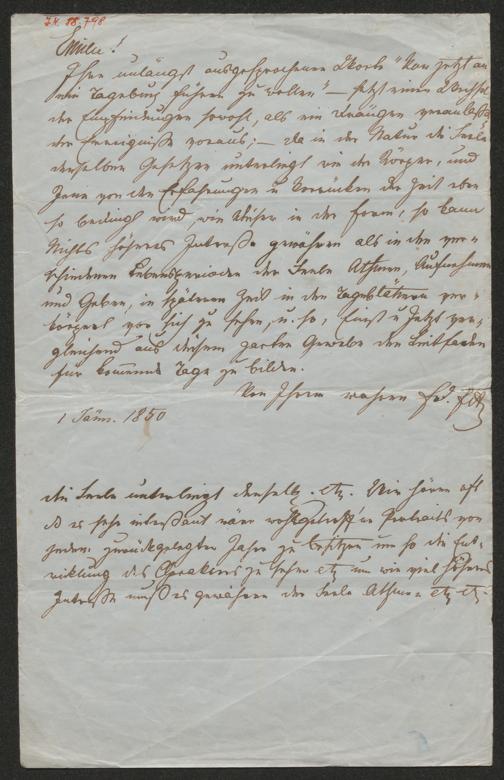 I.N. 88.798
Emilie!
Ihre unlängst ausgesprochenen Worte "Von jetzt an
ein Tagebuch führen zu wollen" – setzt einen Wechsel
der Empfindungen sowohl, als ein Drängen
der Ereignisse voraus; – da in der Natur die Seele
denselben Gesetzen unterliegt wie der Körper, und
Jene von den Erfahrungen u Vorrücken der Zeit eben
so bedingt wird, wie dieser in der Form, so kann
Nichts höheres Interesse gewähren als in den ver-
schiedenen Lebensperioden der Seele Athmen, Aufnehmen
und Geben, in späterer Zeit in den Tagesblättern ver-
körpert vor sich zu sehen, u. so, Einst u Jetzt ver-
gleichend aus diesem zarten Gewebe den Leitfaden
für kommende Tage zu bilden.
Von Ihrem wahren
1 Jänn. 1850
die Seele unterliegt denselb. etz. Wir hören oft
daß es sehr interessant wäre wohlgetroffne Portraits von
jedem zurückgelegten Jahre zu besitzen um so die Ent-
wicklung des zu sehen etz um wie viel höheres
Interesse muß es gewähren der Seele Athmen etz etz.